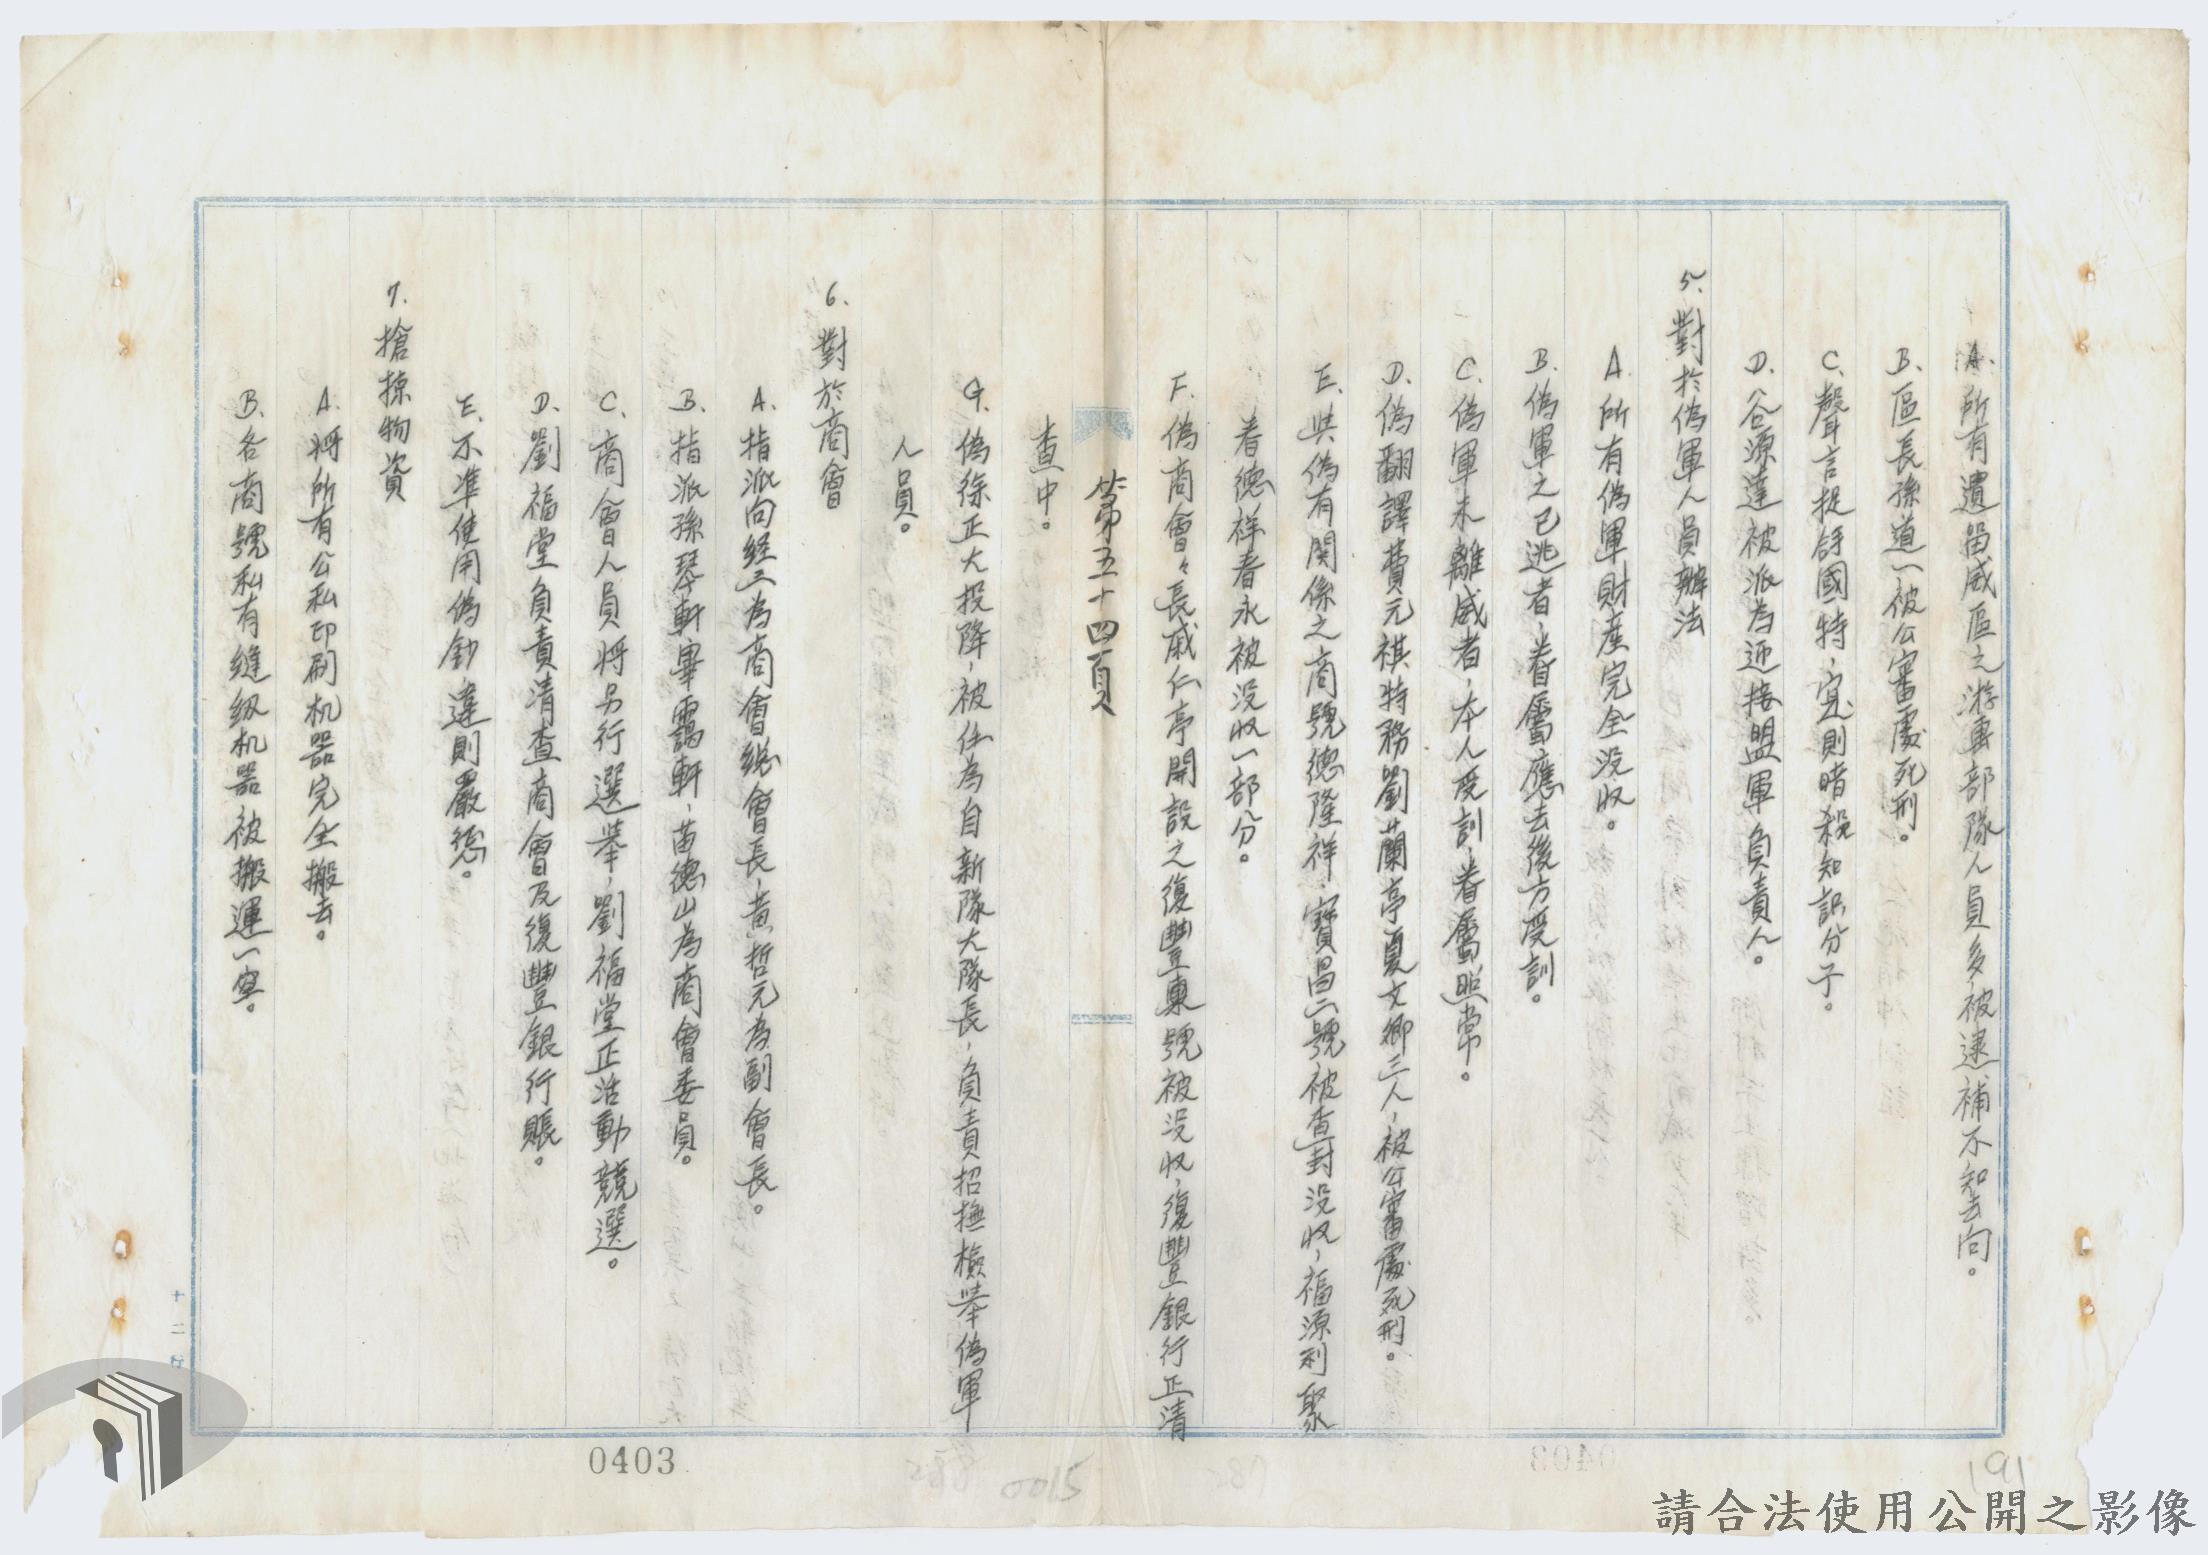 A.所有遺留威區之游擊部隊人員多被逮補不知去向。
B.區長孫道一被公審處死刑。
C.聲言捉拏國特，寔則暗殺知識分子。
D.谷源達被派為迎接盟軍負責人。
5.對於偽軍人員辦法
A.所有偽軍財產完全没收。
B.偽軍之已逃者，眷屬應去後方受訓。
C.偽軍未離威者，本人受訓，眷屬照常。
D.偽翻譯費元祺特務劉蘭亭夏文卿三人，被公審處死刑。
E.與偽有関係之商號德隆祥、寶昌二號被查封没收，福源利聚
春德祥春永被没收一部分。
F.偽商會々長戚仁亭開設之復豐東號被没收，復豐銀行正清
第五十四頁
查中。
G.偽徐正大投降，被任為自新隊大隊長，負責招撫檢举偽軍
人員。
6.對於商會
A.指派向経三為商會総會長，黄哲元為副會長。
B.指派孫琴軒畢靄軒，苗德山為商會委員。
C.商會人員将另行選举，劉福堂正活動競選。
D.劉福堂負責清查商會及復豐銀行賬。
E.不準使用偽鈔，違則嚴懲。
7.搶掠物資
A.将所有公私印刷机器完全搬去。
B.各商號私有縫纫机器被搬運一空。
十二行
0403
288
0015
287
191
請合法使用公開之影像